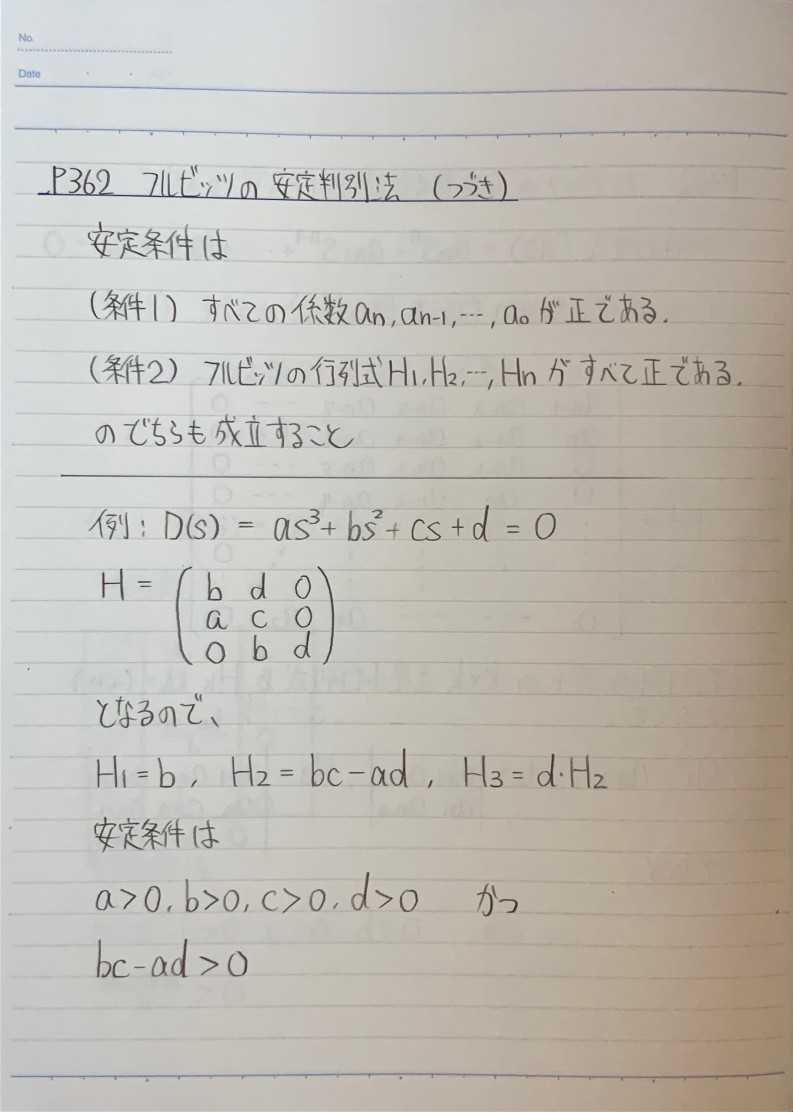 No.
Date
P362 フルビッツの 安定判別法 (つづき)
安定条件は
(条件1) すべての係数an, an-1, …, a₀が正である.
(条件2) フルビッツの行列式H₁, H₂, …, Hnがすべて正である.
のどちらも成立すること
例: D(s) = as³ + bs² + cs + d = 0
H = ( b d 0
a c 0
0 b d )
となるので、
H₁ = b, H₂ = bc - ad, H₃ = d・H₂
安定条件は
a > 0, b > 0, c > 0, d > 0 かつ
bc - ad > 0